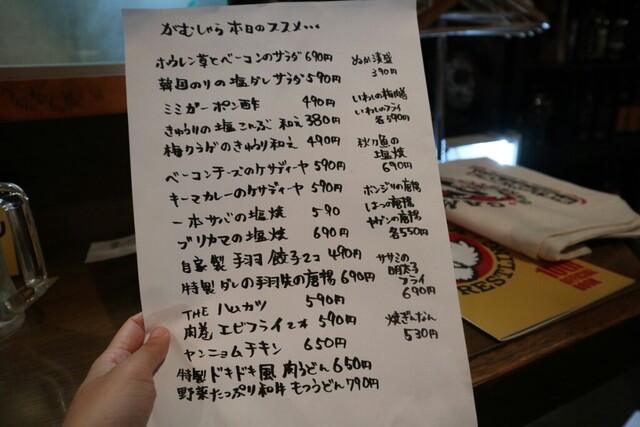 がむしゃら 本日のススメ...
ホウレン草とベーコンのサラダ 690円
韓国のりの塩ダレサラダ 590円
ミミガーポン酢 490円
きゅうりの塩こんぶ和え 380円
梅クラゲのきゅうり和え 490円
ベーコンチーズのケサディーヤ 590円
キーマカレーのケサディーヤ 590円
一本サバの塩焼 590
ブリカマの塩焼 690円
自家製手羽餃子2コ 490円
特製ダレの手羽先の唐揚 690円
THE ハムカツ 590円
肉巻エビフライ2本 590円
ヤンニョムチキン 650円
特製ドキドキ風肉うどん 650円
野菜たっぷり和牛もつうどん 790円
ぬか漬盛
390円
いわしの梅肉揚
いわしのフライ
各590円
秋刀魚の
塩焼
690円
ボンジリの唐揚
はつの唐揚
ヤゲンの唐揚
各550円
ササミの
明太子
フライ
690円
焼ぎんなん
530円